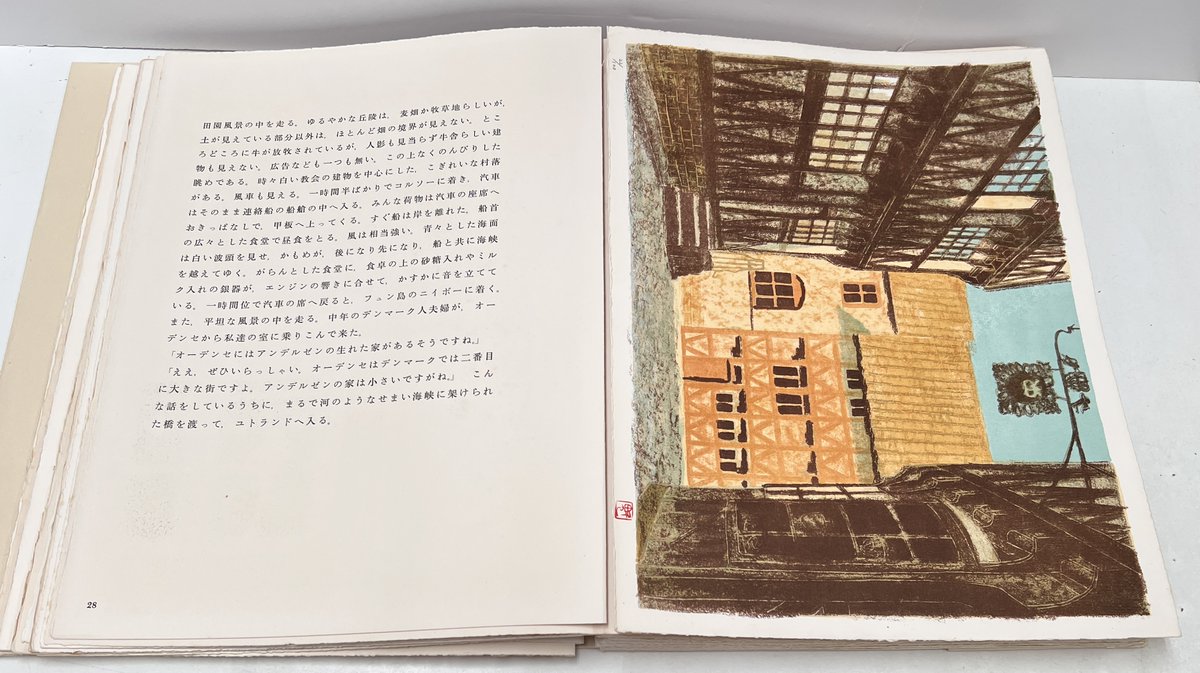 田園風景の中を走る．ゆるやかな丘陵は，麦畑か牧草地らしいが，
土が見えている部分以外は，ほとんど畑の境界が見えない．とこ
ろどころに牛が放牧されているが，人影も見当らず牛舎らしい建
物も見えない．広告なども一つも無い．この上なくのんびりした
眺めである．時々白い教会の建物を中心にした，こぎれいな村落
がある．風車も見える．一時間半ばかりでコルソーに着き，汽車
はそのまま連絡船の船艙の中へ入る．みんな荷物は汽車の座席へ
おきっぱなしで，甲板へ上ってくる．すぐ船は岸を離れた．船首
の広々とした食堂で昼食をとる．風は相当強い．青々とした海面
は白い波頭を見せ，かもめが，後になり先になり，船と共に海峡
を越えてゆく．がらんとした食堂に，食卓の上の砂糖入れやミル
ク入れの銀器が，エンジンの響きに合せて，かすかに音を立てて
いる．一時間位で汽車の席へ戻ると，フュン島のニイボーに着く．
また，平坦な風景の中を走る．中年のデンマーク人夫婦が，オー
デンセから私達の室に乗りこんで来た．
「オーデンセにはアンデルゼンの生れた家があるそうですね」
「ええ，ぜひいらっしゃい．オーデンセはデンマークでは二番目
に大きな街ですよ．アンデルゼンの家は小さいですがね」　こん
な話をしているうちに，まるで河のようなせまい海峡に架けられ
た橋を渡って，ユトランドへ入る．
28